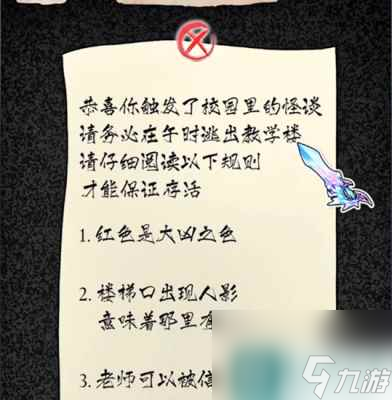 恭喜你触发了校园里的怪谈
请务必在午时逃出教学楼
请仔细阅读以下规则
才能保证存活
1. 红色是大凶之色
2. 楼梯口出现人影
意味着那里有
3. 老师可以被信
九游